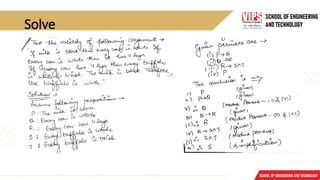 Solve
VIPS
SCHOOL OF ENGINEERING
AND TECHNOLOGY
Test the validity of following argument :-
If milk is black then every cow is white. If
every cow is white then it has 4 legs.
If every cow has 4 legs then every buffalo
is white & brisk. The milk is black. Therefore
the buffalo is white.
Solution :-
Assume following proposition -
P : The milk is black
Q : Every cow is white
R : Every cow has 4 legs
S : Every buffalo is white
T : Every buffalo is brisk
Given premises are →
(i) P→Q
(ii) Q→R
(iii) R→S∧T
(iv) P
The conclusion is
1) P (given)
2) P→Q (given)
3) ∴ Q (Modus Ponens
Q→R (given)
∴ R (Modus Ponens
R→S∧T (given)
∴ S∧T (modus ponens)
∴ S (simplification)
SCHOOL OF ENGINEERING AND TECHNOLOGY